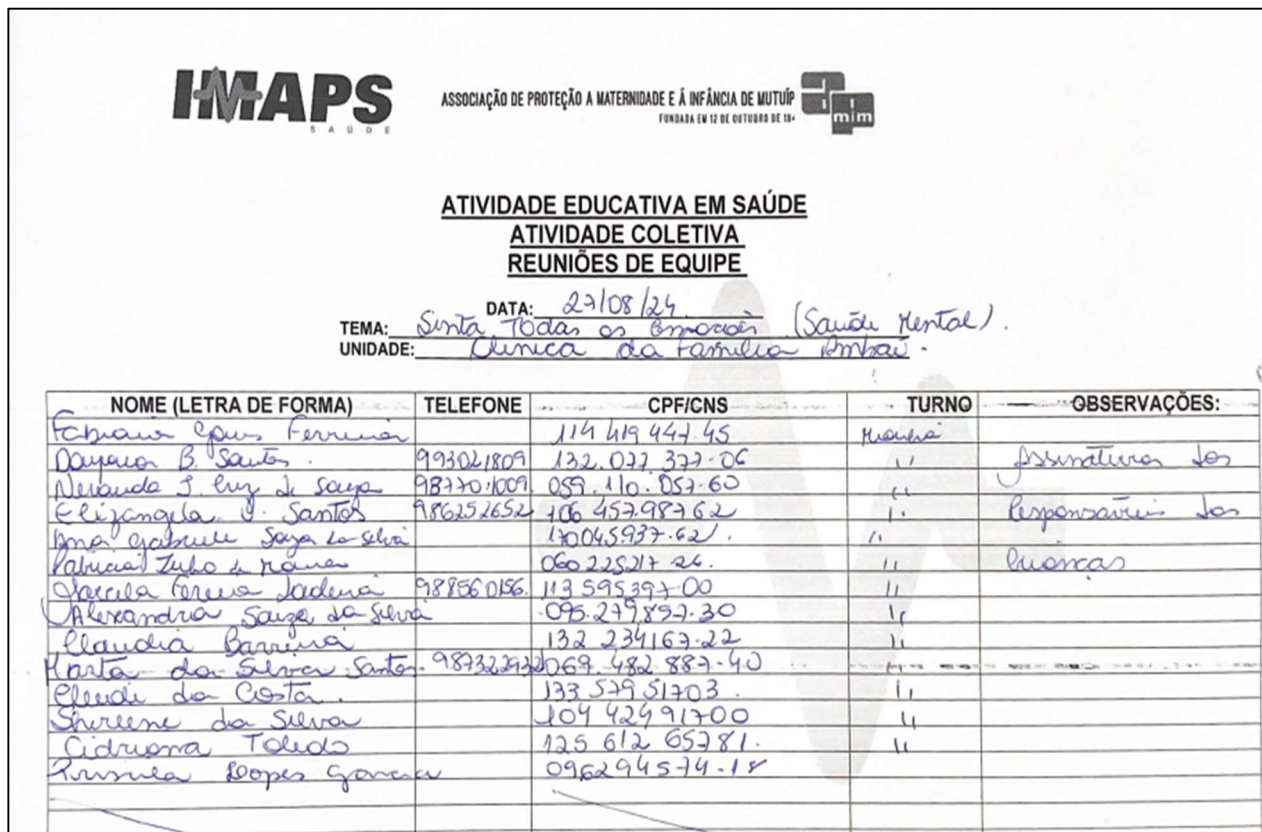 IMAPS
SAÚDE
ASSOCIAÇÃO DE PROTEÇÃO A MATERNIDADE E Á INFÂNCIA DE MUTUÍP
FUNDADA EM 12 DE OUTUBRO DE
mim
ATIVIDADE EDUCATIVA EM SAÚDE
ATIVIDADE COLETIVA
REUNIÕES DE EQUIPE
DATA: 27/08/24
TEMA: Sinta Todas as emoções (Saúde Mental).
UNIDADE: Clinica da Familia Ambaí.
NOME (LETRA DE FORMA) TELEFONE CPF/CNS TURNO OBSERVAÇÕES:
Ferreira 114 419 447.45 Manhã
B. Santos. 993021809 132.077 377-06 " Assinaturas dos
de Souza 98770.1009. 059.110.057-60 "
Elizangela Santos 986252652 106 457.987 62 " Responsaveis das
Ana Gabriele Souza da Silva 170045937.62. "
060 225217-26. " Crianças
988560156. 113 595397-00 "
Alexandria Souza da Silva 095.279.857-30 "
Claudia 132 234167-22 "
Marta da Silva Santos. 987322932 069.482 887-40 "
da Costa. 133 579 51703. "
da Silva 104 424 91700 "
Toledo 125 612 65781. "
Lopes 096294574-18